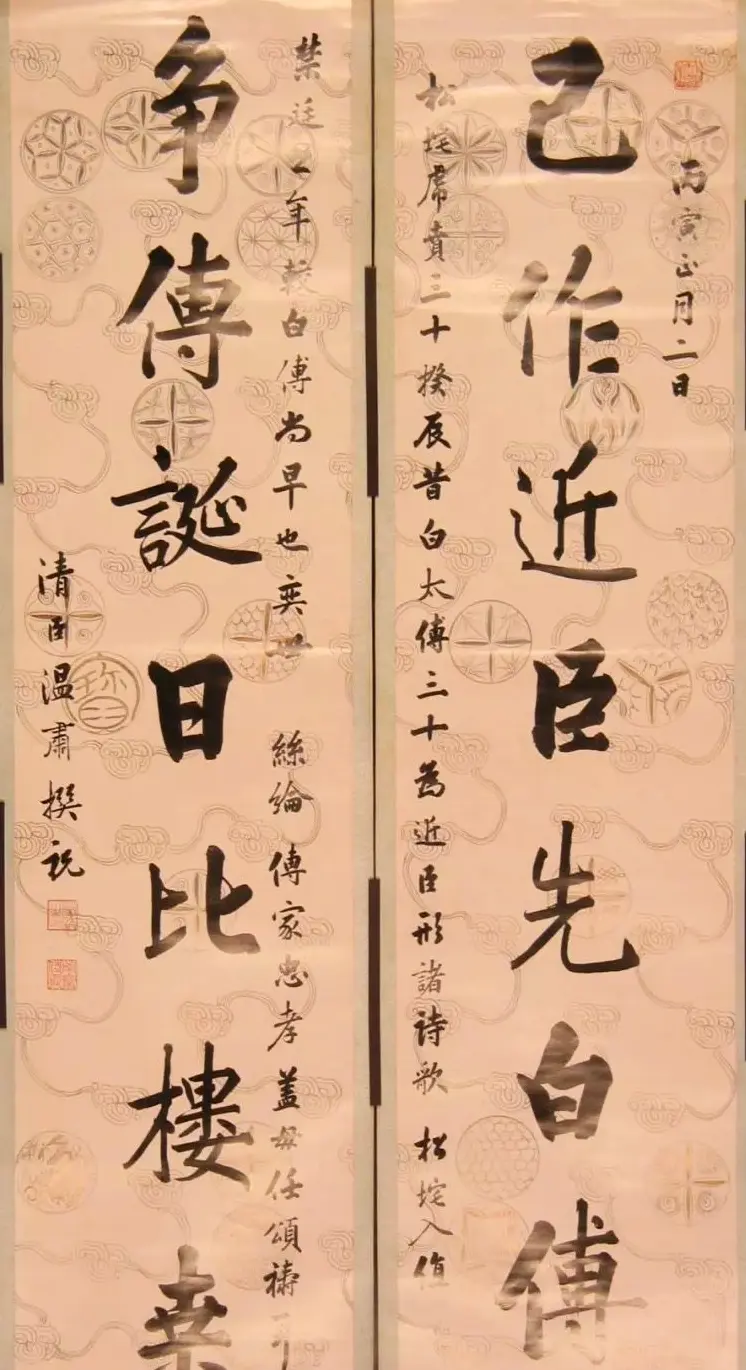 丙寅正月二日
已作近臣先白傅
松垞虎賁三十揆辰昔白太傅三十為近臣形諸詩歌 松垞入值
禁廷之年較白傅尚早也奕世 絲綸傳家忠孝蓋毋任頌禱
争傳誕日比樓桒
清臣温肅撰祝